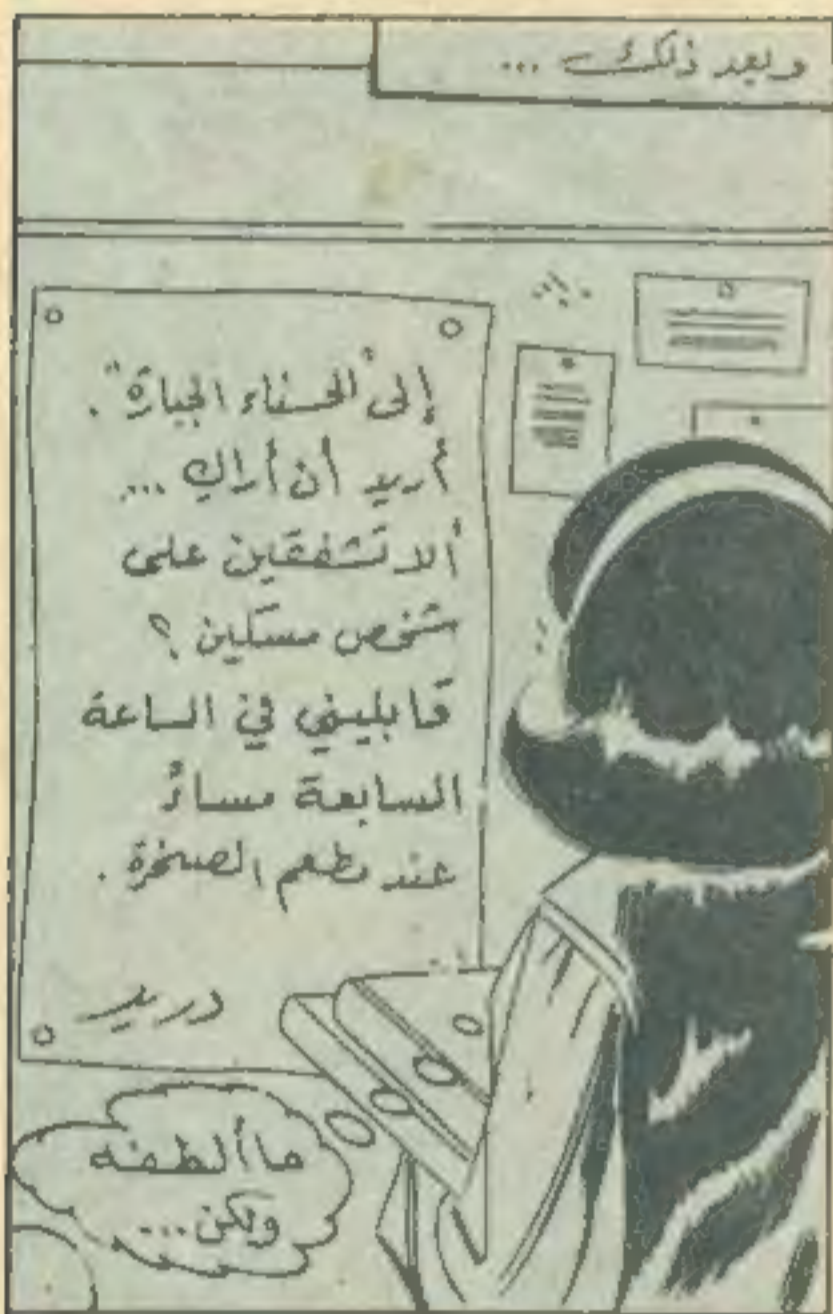 وبعد ذلك ...
إلى "الحسناء الجبارة".
أريد أن أراكِ ...
ألا تشفقين على
شخص مسكين ؟
قابليني في الساعة
السابعة مساءً
عند مطعم الصخرة .
دريد
ما ألطفه
ولكن ...